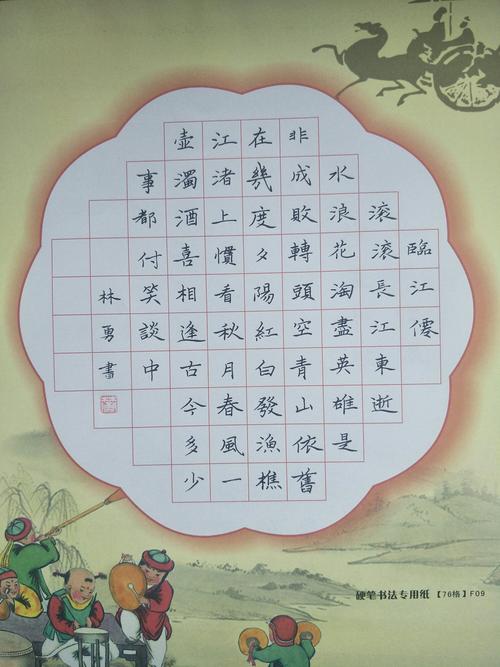 臨江僊
滾滾長江東逝
水浪花淘盡英雄是
非成敗轉頭空青山依舊
在幾度夕陽紅白發漁樵
江渚上慣看秋月春風一
壺濁酒喜相逢古今多少
事都付笑談中
林勇書
硬笔书法专用纸【76格】F09